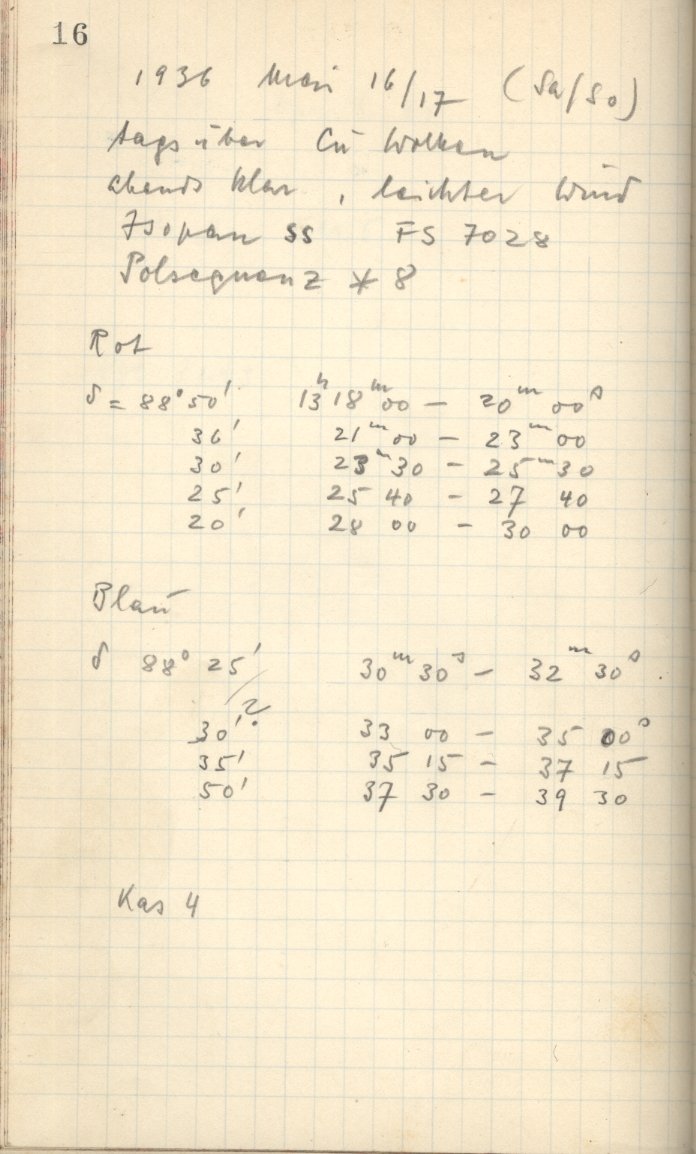 16
1936 Mai 16/17 (Sa/So)
tags über Cu Wolken
abends klar, leichter Wind
Isopan SS FS 7028
Polsequenz * 8
Rot
δ = 88° 50' 13ʰ 18ᵐ 00 — 20ᵐ 00ˢ
36' 21ᵐ 00 — 23ᵐ 00
30' 23ᵐ 30 — 25ᵐ 30
25' 25 40 — 27 40
20' 28 00 — 30 00
Blau
δ 88° 25' 30ᵐ 30ˢ — 32ᵐ 30ˢ
?
30' 33 00 — 35 00ˢ
35' 35 15 — 37 15
50' 37 30 — 39 30
Kas 4